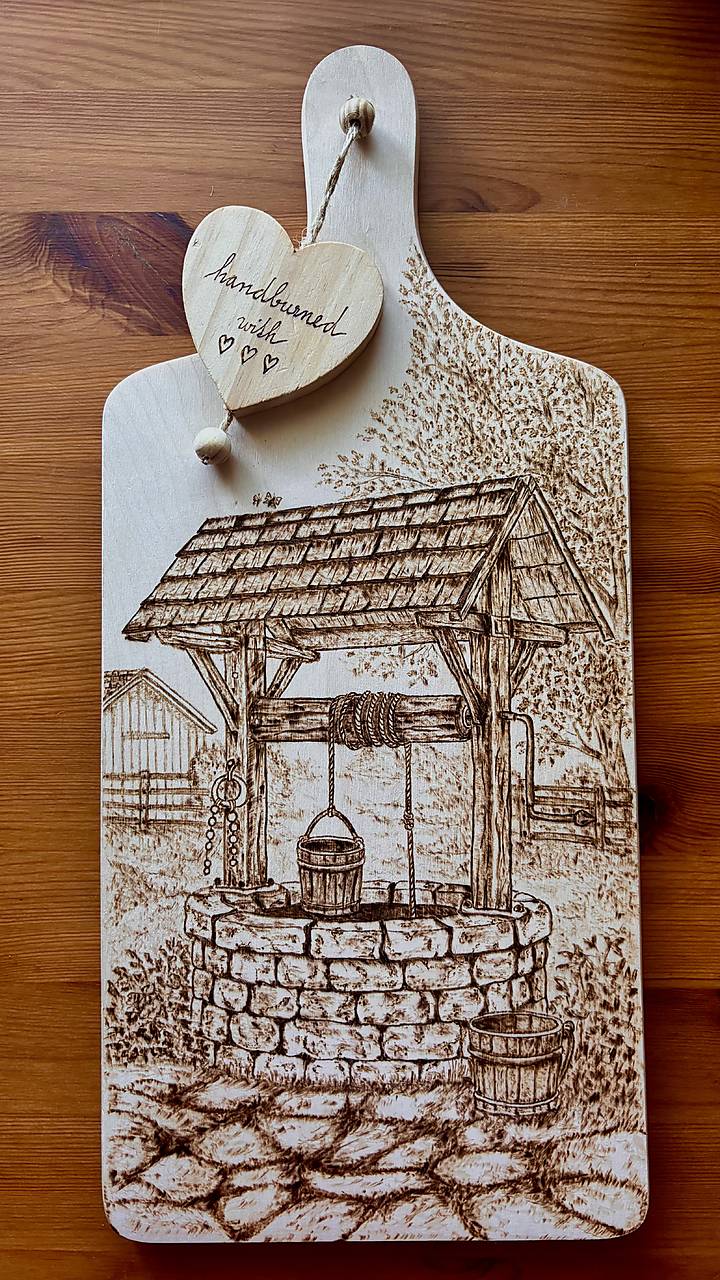 handburned
with
♡ ♡ ♡